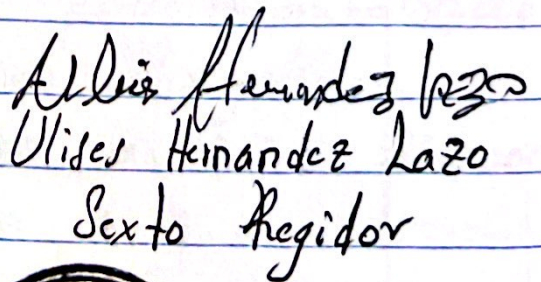 Hernandez
Ulises Hernandez Lazo
Sexto Regidor